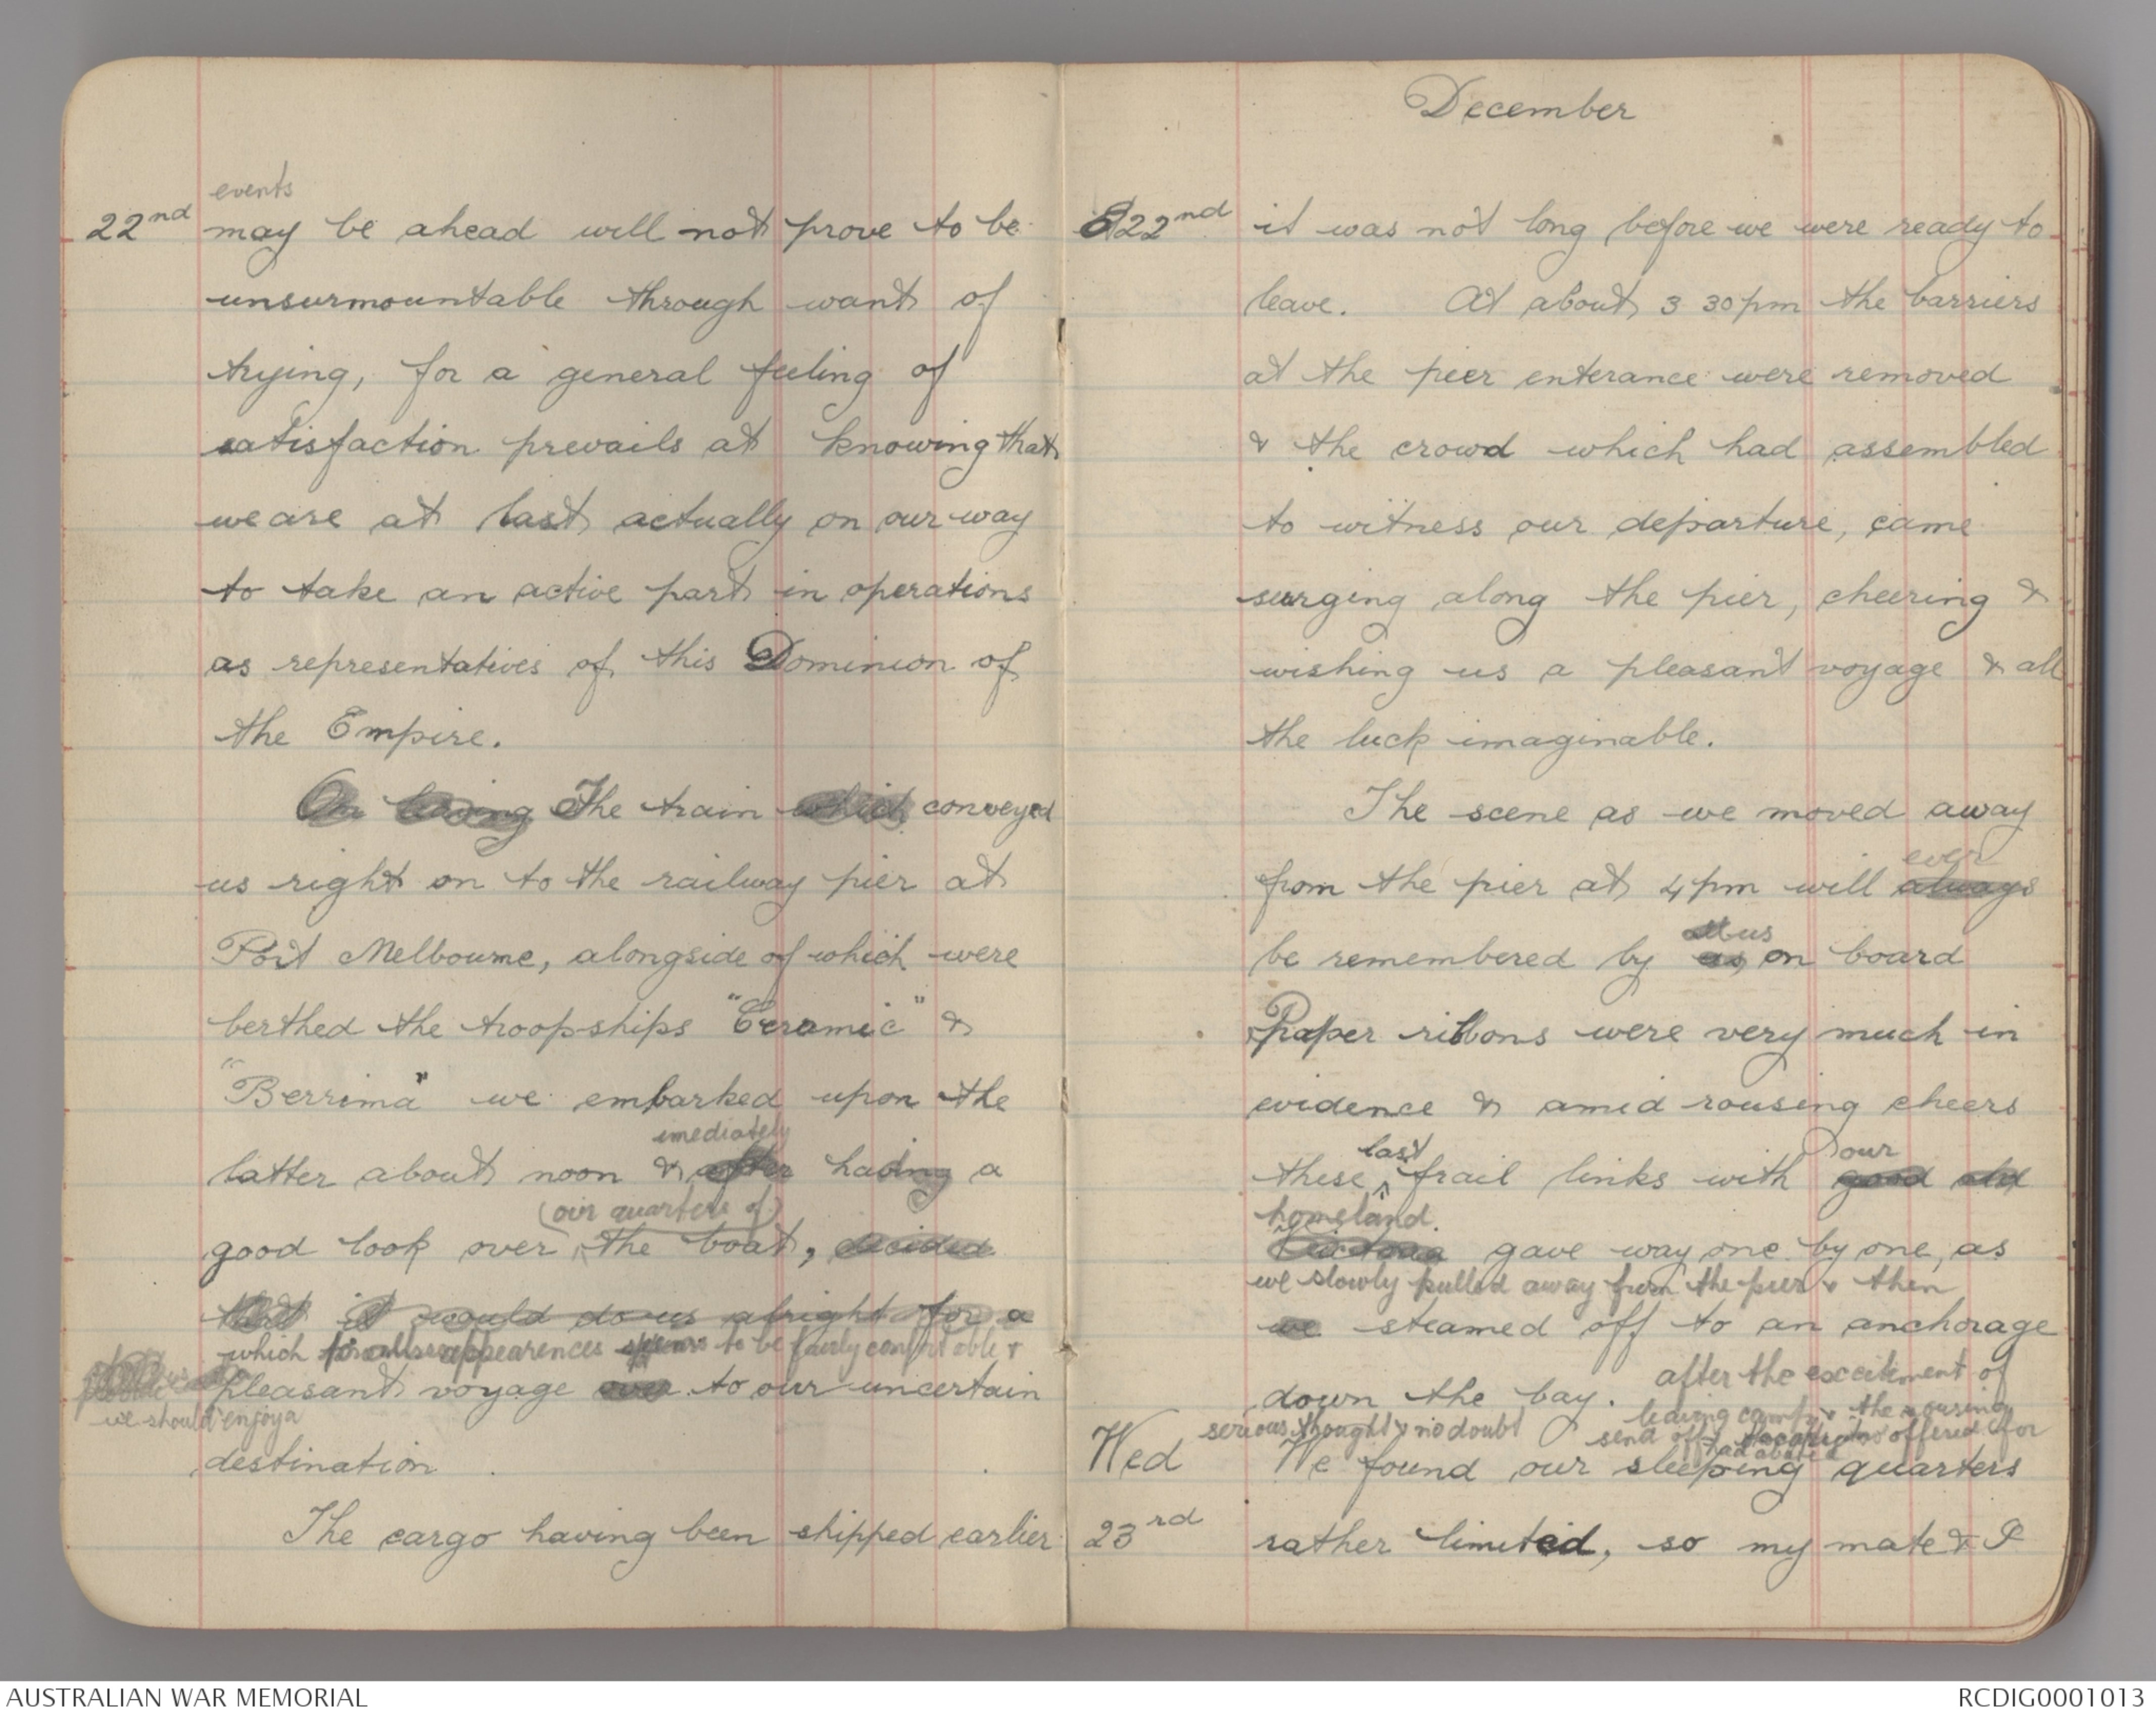 events
22nd may be ahead will not prove to be
unsurmountable through want of
trying, for a general feeling of
satisfaction prevails at knowing that
we are at last actually on our way
to take an active part in operations
as representatives of this Dominion of
the Empire.
On leaving The train which conveyed
us right on to the railway pier at
Port Melbourne, alongside of which were
berthed the troopships "Ceramic" &
"Berrima" we embarked upon the
imediately
latter about noon & after having a
(our quarters of)
good look over the boat, decided
that it would do us alright for a
which to all appearences seems to be fairly comfortable &
pleasant voyage over to our uncertain
we should enjoy a
destination
The cargo having been shipped earlier
December
22nd it was not long before we were ready to
leave. At about 3 30 pm the barriers
at the pier enterance were removed
& the crowd which had assembled
to witness our departure, came
surging along the pier, cheering &
wishing us a pleasant voyage & all
the luck imaginable.
The scene as we moved away
ever
from the pier at 4 pm will always
all us
be remembered by us on board
Paper ribbons were very much in
evidence & amid rousing cheers
last our
these ^ frail links with good old
homeland.
Victoria gave way one by one, as
we slowly pulled away from the pier & then
we steamed off to an anchorage
down the bay. after the excitement of
leaving camp & the rousing
serious thought & no doubt send off had abated offered for
Wed We found our sleeping quarters
23rd rather limited, so my mate & I
AUSTRALIAN WAR MEMORIAL
RCDIG0001013